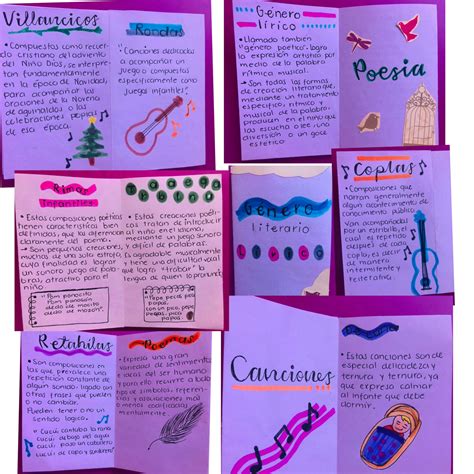 Villancicos
• Compuestas como recuerdo
cristiano del adviento
del Niño Dios, se interpretan
fundamentalmente
en la época de Navidad,
para acompañar las
oraciones de la Novena
de aguinaldos o las
celebraciones populares
de esa época.
Rondas
• Canciones dedicadas
a acompañar un
juego o compuestas
específicamente como
juegos infantiles.
Género
lírico
• Llamado también
"género poético" logra
la expresión artística por
medio de la palabra
rítmica musical.
• Son todas las formas
de creación literaria que,
mediante un tratamiento
específico, rítmico y
musical de la palabra,
producen en el niño que
las escucha o lee una
diversión o un goce
estético.
Poesia
Rimas
Infantiles
• Estas composiciones poéticas
tienen características bien
definidas, que la diferencian
claramente del poema.
• Son pequeñas creaciones,
muchas de una sola estrofa,
cuya finalidad es lograr
un sonido juego de palabras,
atractivo para el
niño.
• Estas creaciones poéticas
tratan de introducir
al niño en el idioma,
mediante un juego sonoro
y difícil de palabras.
Es agradablemente musicalmente
y tiene una dificultad vocal
que logra "trabar" la
lengua de quien lo pronuncia.
Género
literario
Lírico
Coplas
• Composiciones que
narran generalmente
algún acontecimiento de
conocimiento público.
Van acompañados
por un estribillo, el
cual es repetido
después de cada
copla, es decir,
de manera
intermitente y
reiterativa.
Retahilas
• Son composiciones en
las que prevalece una
repetición constante de
algún sonido, ligado con
otras frases que pueden
o no cambiar.
Pueden tener o no un
sentido lógico.
Cucú, cantaba la rana
Cucú, debajo del agua
Cucú, pasó un caballero
Cucú, de capa y sombrero
Poemas
• Expresa una gran
variedad de sentimientos
e ideas del ser humano
Canciones
• Estas canciones son de
especial delicadeza y
ternura y ternura, ya
que expresa calmar
al infante que debe
dormir.